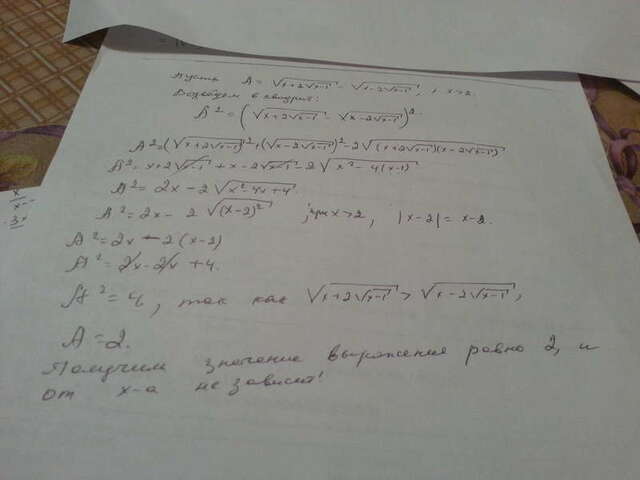 Пусть A = √(x+2√(x-1)) - √(x-2√(x-1)), x>2.
Возведём в квадрат:
A² = (√(x+2√(x-1)) - √(x-2√(x-1)))².
A²=(√(x+2√(x-1)))²+(√(x-2√(x-1)))²-2√((x+2√(x-1))(x-2√(x-1)))
A²=x+2√(x-1)+x-2√(x-1)-2√(x²-4(x-1))
A²=2x-2√(x²-4x+4)
A²=2x-2√((x-2)²); при x>2, |x-2|=x-2.
A²=2x-2(x-2)
A²=2x-2x+4.
A²=4, так как √(x+2√(x-1)) > √(x-2√(x-1));
A=2.
Получим значение выражения равно 2, и
от x-а не зависит!
x
x-
3x